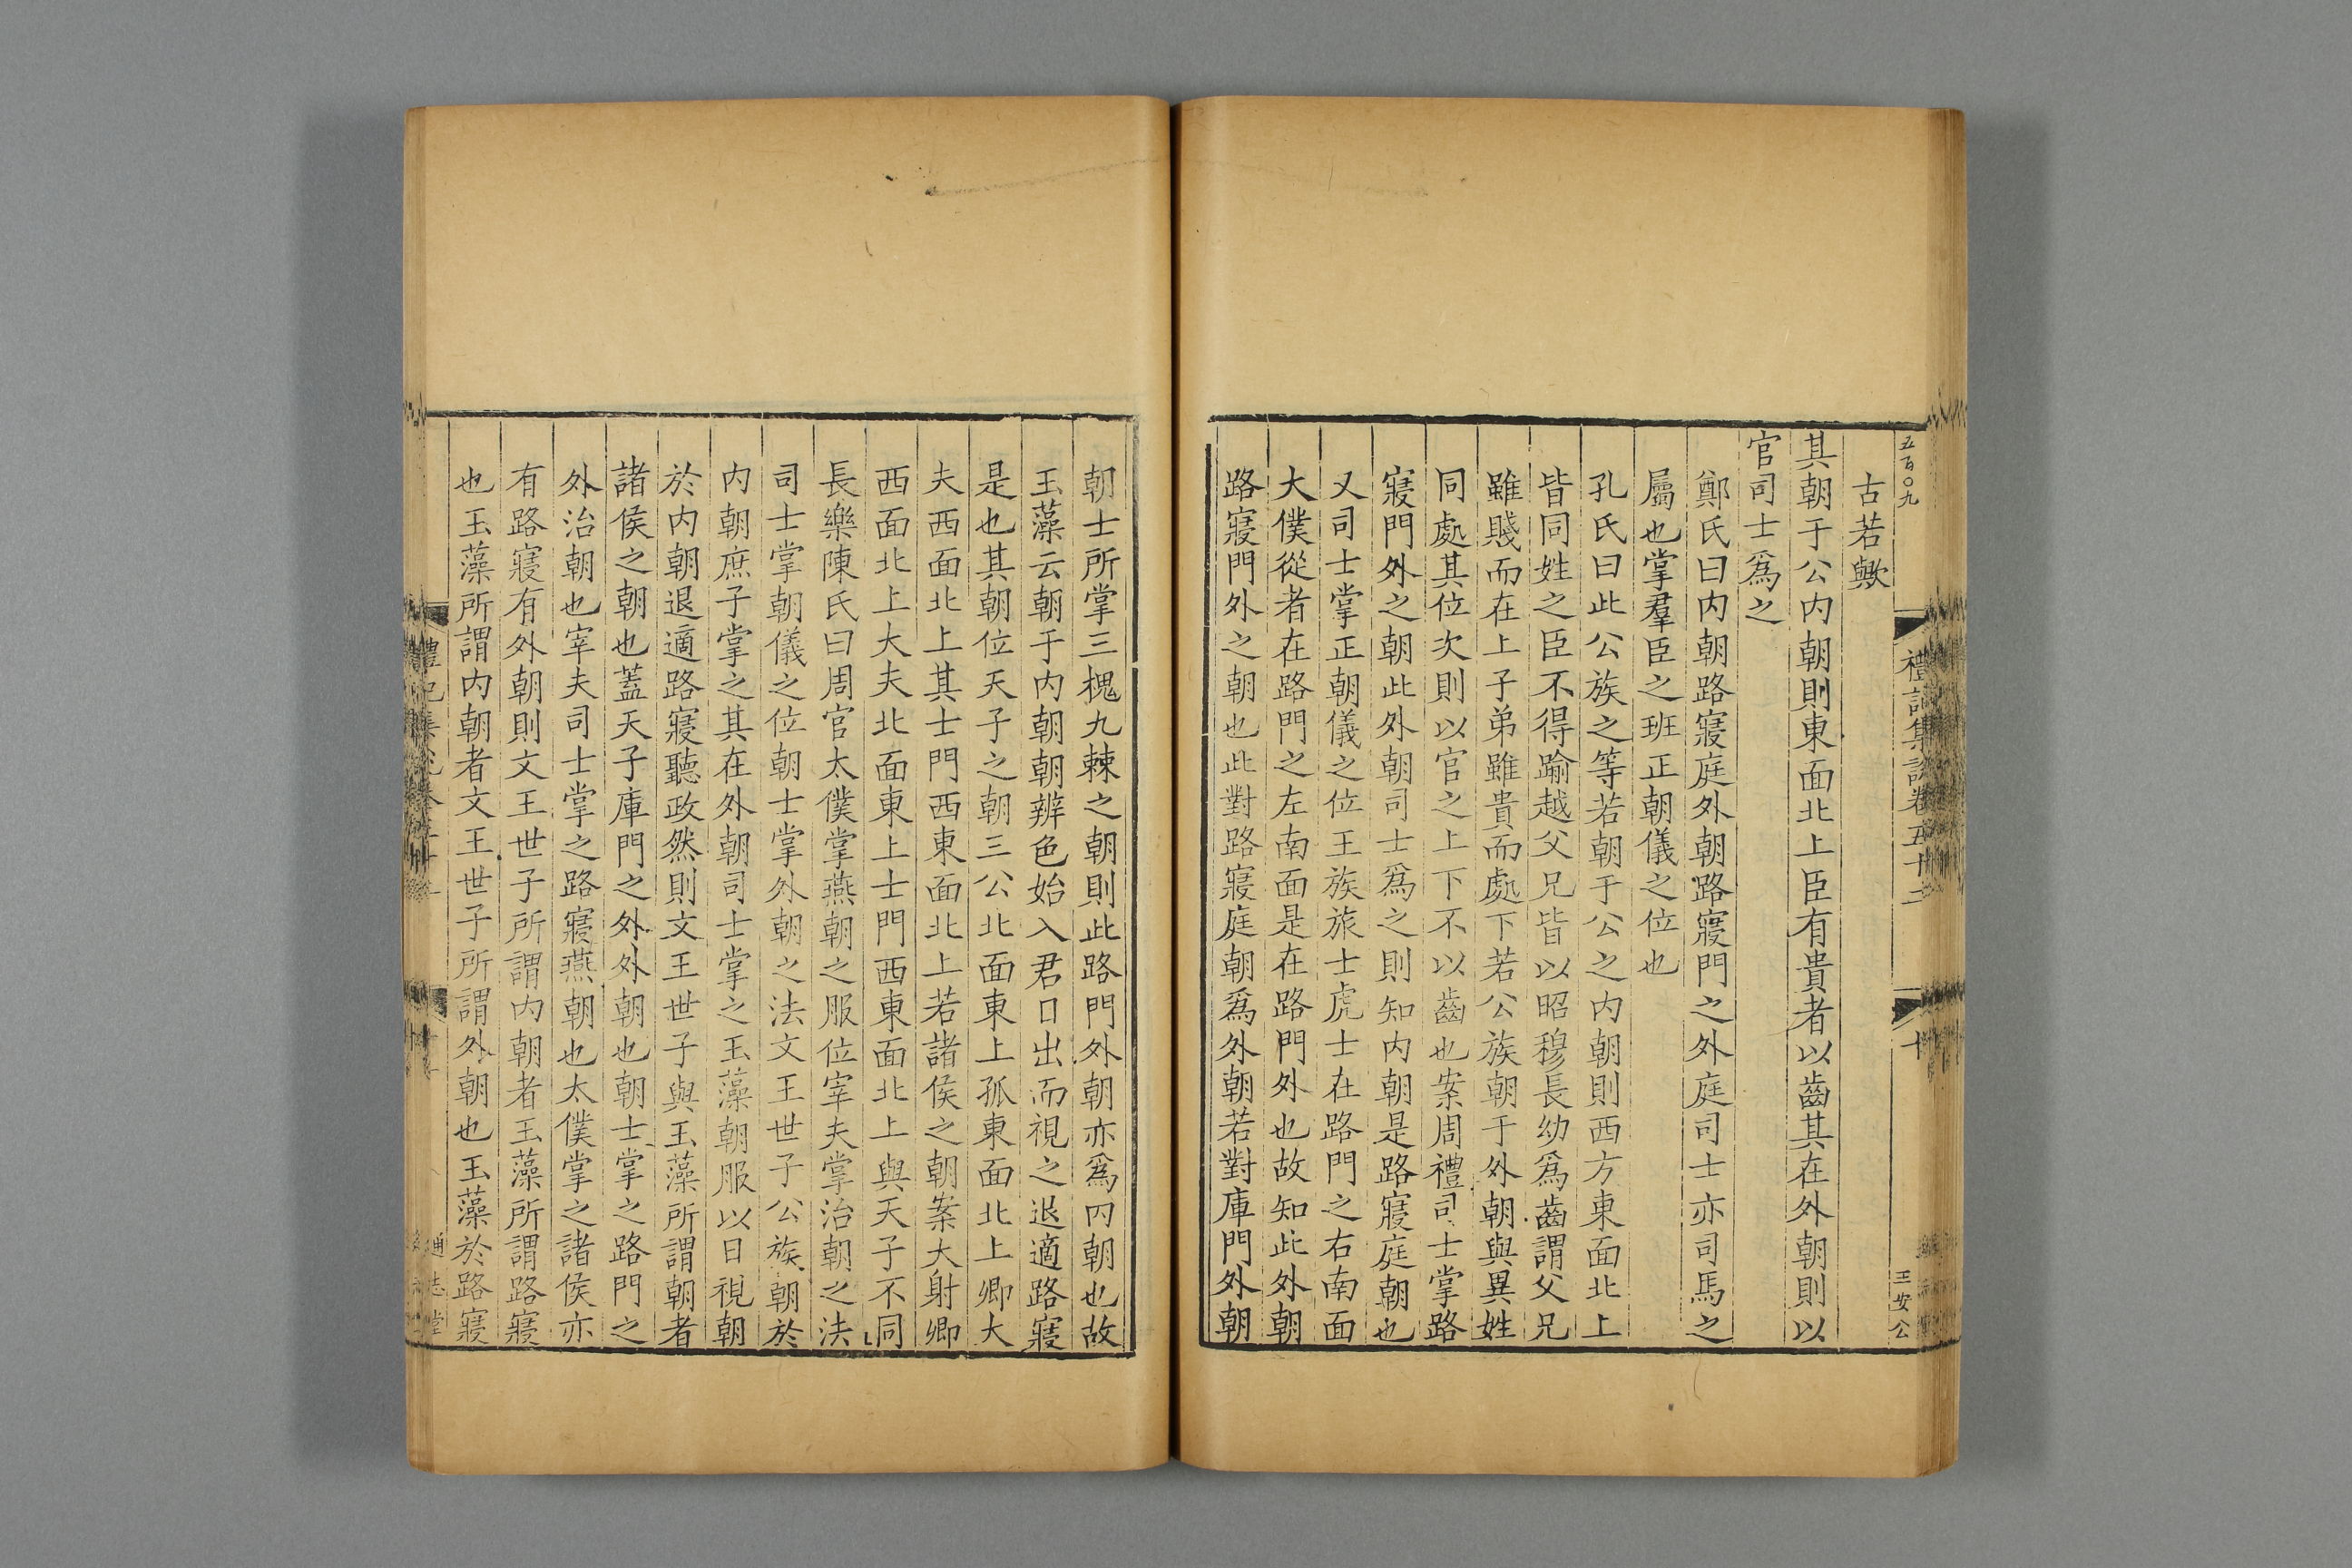 五百〇九
禮記集說卷五十二
十
王安公
古若歟
其朝于公内朝則東面北上臣有貴者以齒其在外朝則以
官司士爲之
鄭氏曰内朝路寢庭外朝路寢門之外庭司士亦司馬之
屬也掌羣臣之班正朝儀之位也
孔氏曰此公族之等若朝于公之内朝則西方東面北上
皆同姓之臣不得踰越父兄皆以昭穆長幼爲齒謂父兄
雖賤而在上子弟雖貴而處下若公族朝于外朝與異姓
同處其位次則以官之上下不以齒也案周禮司士掌路
寢門外之朝此外朝司士爲之則知内朝是路寢庭朝也
又司士掌正朝儀之位王族旅士虎士在路門之右南面
大僕從者在路門之左南面是在路門外也故知此外朝
路寢門外之朝也此對路寢庭朝爲外朝若對庫門外朝
朝士所掌三槐九棘之朝則此路門外朝亦爲内朝也故
玉藻云朝于内朝朝辨色始入君日出而視之退適路寢
是也其朝位天子之朝三公北面東上孤東面北上卿大
夫西面北上其士門西東面北上若諸侯之朝案大射卿
西面北上大夫北面東上士門西東面北上與天子不同
長樂陳氏曰周官太僕掌燕朝之服位宰夫掌治朝之法
司士掌朝儀之位朝士掌外朝之法文王世子公族朝於
内朝庶子掌之其在外朝司士掌之玉藻朝服以日視朝
於内朝退適路寢聽政然則文王世子與玉藻所謂朝者
諸侯之朝也蓋天子庫門之外外朝也朝士掌之路門之
外治朝也宰夫司士掌之路寢燕朝也太僕掌之諸侯亦
有路寢有外朝則文王世子所謂内朝者玉藻所謂路寢
也玉藻所謂内朝者文王世子所謂外朝也玉藻於路寢
通志堂